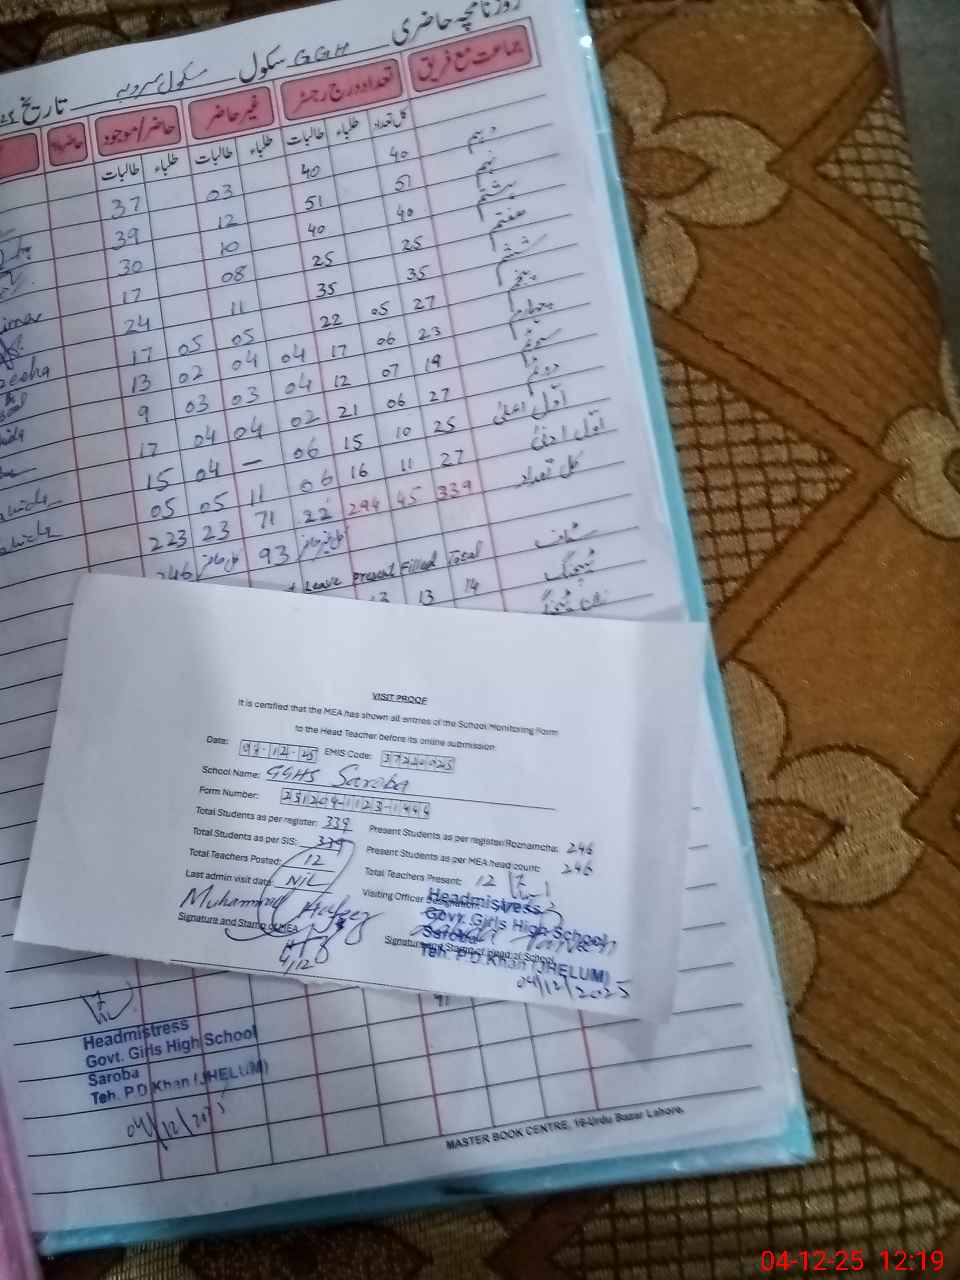 روزنامچہ حاضری GGH سکول سروبہ تاریخ
جماعت مع فریق تعداد درج رجسٹر غیر حاضر حاضر/موجود حاضر%
کل تعداد طلباء طالبات طلباء طالبات طلباء طالبات
دہم 40 40 03 37
نہم 51 51 12 39
ہشتم 40 40 10 30
ہفتم 25 25 08 17
ششم 35 35 11 24
پنجم 27 05 22 05 05 17
چہارم 23 06 17 04 04 02 13
سوئم 19 07 12 04 03 03 9
دوئم 27 06 21 02 04 04 17
اول اعلیٰ 25 10 15 06 — 04 15
اول ادنیٰ 27 11 16 06 11 05 05
کل تعداد 339 45 294 22 71 23 223
93 246
سٹاف Total Filled Present Leave
ٹیچنگ 14 13
نان ٹیچنگ
VISIT PROOF
It is certified that the MEA has shown all entries of the School Monitoring Form
to the Head Teacher before its online submission
Date: 04-12-25 EMIS Code: 37220025
School Name: GGHS Saroba
Form Number: 251204-1123-1444
Total Students as per register: 339 Present Students as per register/Roznamcha: 246
Total Students as per SIS: 339 Present Students as per MEA head count: 246
Total Teachers Posted: 12 Total Teachers Present: 12
Last admin visit date: Nil Visiting Officer Designation:
Muhammad Hafeez
Signature and Stamp of MEA Signature and Stamp of Head of School
4/12
Headmistress
Govt. Girls High School
Saroba
Teh. P.D.Khan (JHELUM)
04/12/2025
Headmistress
Govt. Girls High School
Saroba
Teh. P.D.Khan (JHELUM)
04/12/2025
MASTER BOOK CENTRE, 16-Urdu Bazar Lahore.
04-12-25 12:19